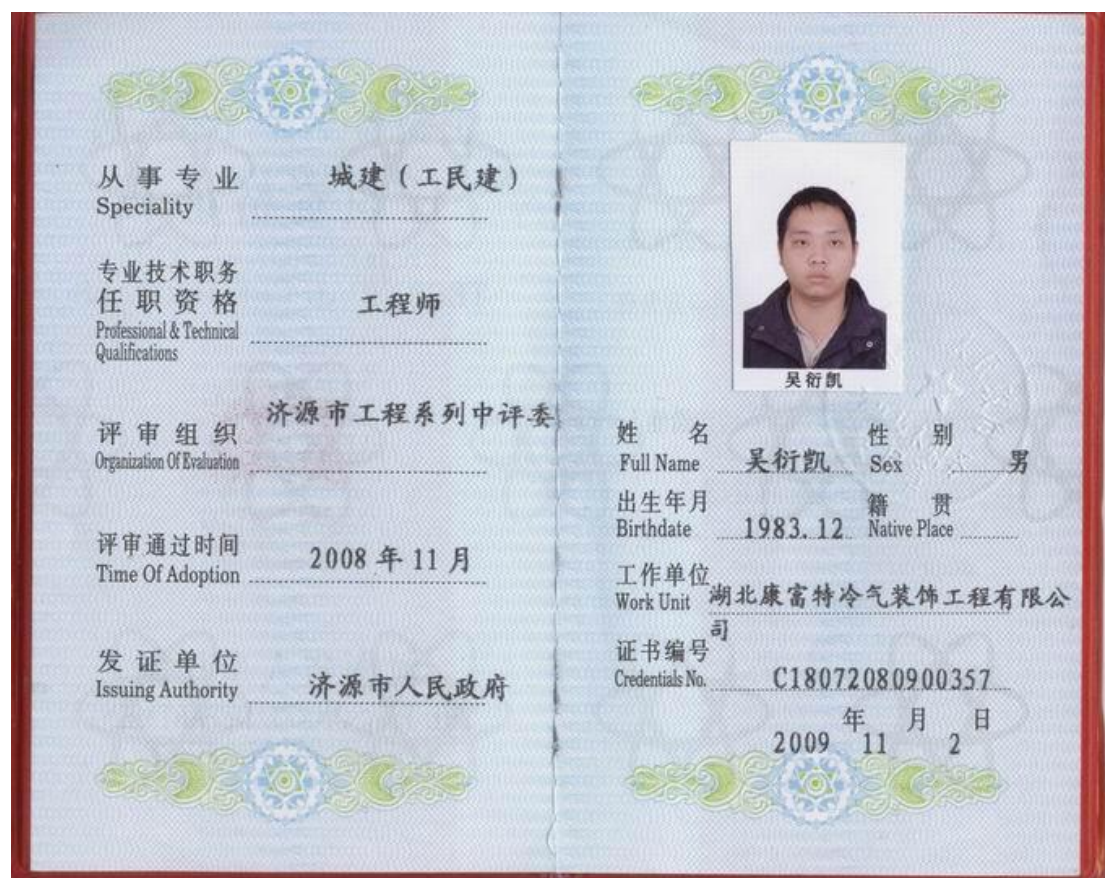 从事专业 城建（工民建）
Speciality
专业技术职务
任职资格 工程师
Professional & Technical
Qualifications
济源市工程系列中评委
评审组织
Organization Of Evaluation
评审通过时间 2008年11月
Time Of Adoption
发证单位
Issuing Authority 济源市人民政府
吴衍凯
姓名 性别
Full Name 吴衍凯 Sex 男
出生年月 籍贯
Birthdate 1983.12 Native Place
工作单位
Work Unit 湖北康富特冷气装饰工程有限公
司
证书编号
Credentials No. C18072080900357
年 月 日
2009 11 2